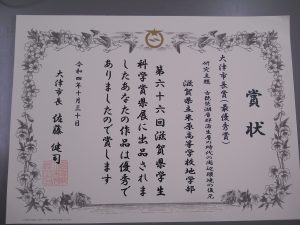 賞状
大津市長賞(最優秀賞)
研究主題 古琵琶湖層群蒲生層の時代の周辺環境の復元
滋賀県立米原高等学校地学部
第六十六回滋賀県学生
科学賞県展に出品されま
したあなたの作品は優秀で
ありましたので賞します
令和四年十月三十日
大津市長 佐藤健司